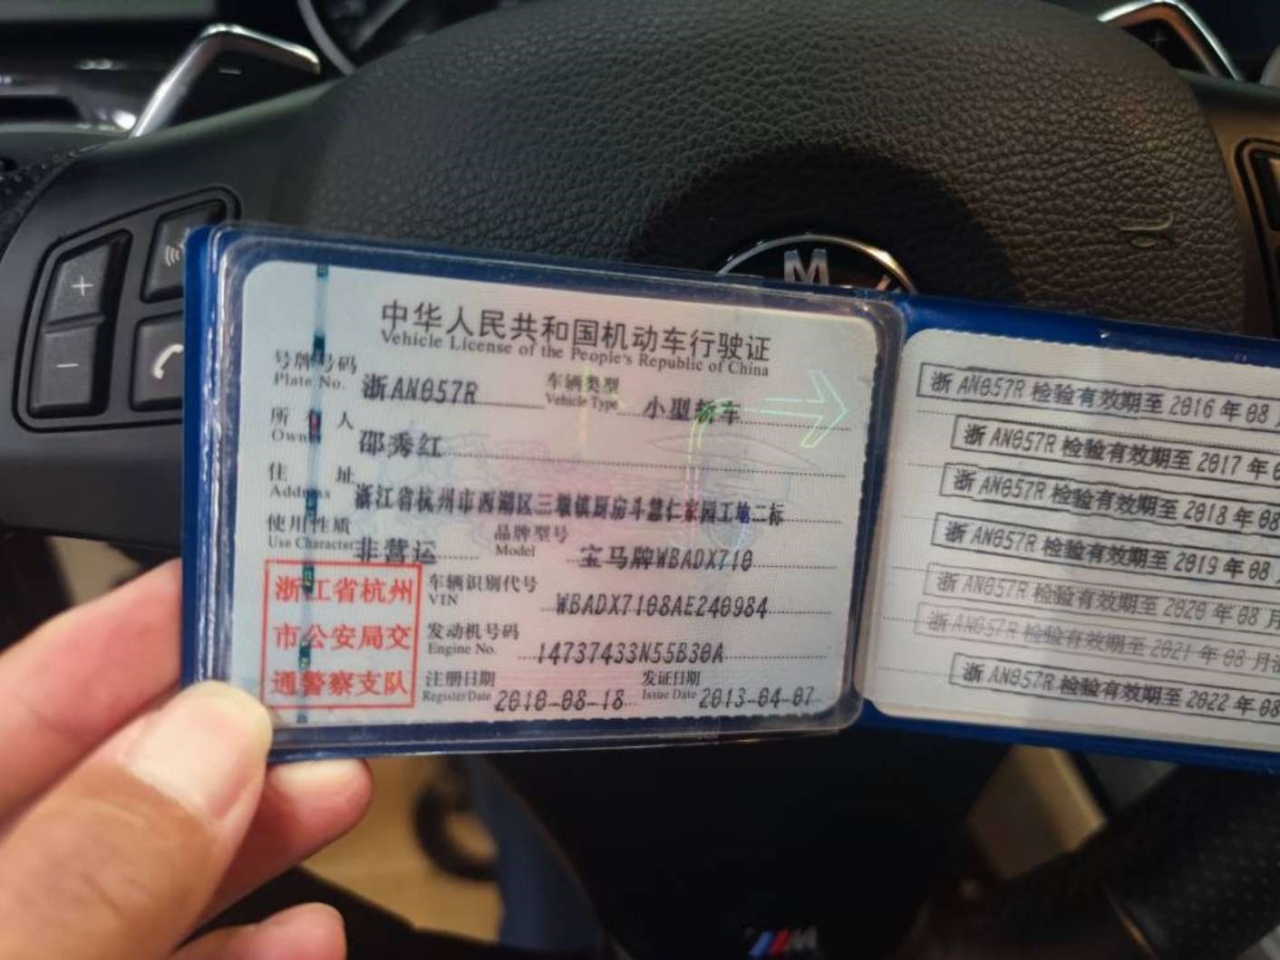 中华人民共和国机动车行驶证
Vehicle License of the People's Republic of China
号牌号码 浙AN057R 车辆类型 小型轿车
Plate No. Vehicle Type
所有人 邵秀红
Owner
住址 浙江省杭州市西湖区三墩镇厨房斗慧仁家园工地二标
Address
使用性质 非营运 品牌型号 宝马牌WBADX710
Use Character Model
浙江省杭州
市公安局交
通警察支队
车辆识别代号 WBADX7108AE240984
VIN
发动机号码 14737433N55B30A
Engine No.
注册日期 2010-08-18 发证日期 2013-04-07
Register Date Issue Date
浙AN057R 检验有效期至 2016年08
浙AN057R 检验有效期至 2017年0
浙AN057R 检验有效期至 2018年08
浙AN057R 检验有效期至 2019年08
浙AN057R 检验有效期至 2020年08月
浙AN057R 检验有效期至 2021年08月
浙AN057R 检验有效期至 2022年08
M
M
+
−
+
−